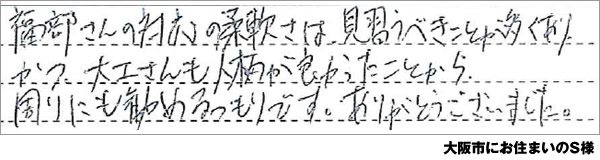 福部さんの対応の柔軟さは、見習うべきことが多くあり
かつ、大工さんも人柄が良かったことから、
周りにも勧めるつもりです。ありがとうございました。
大阪市にお住まいのS様